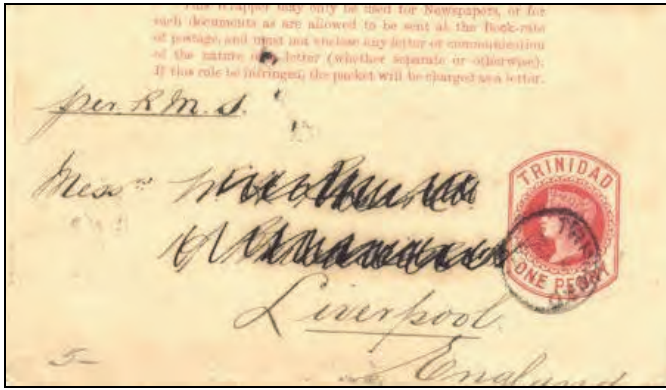 This Wrapper may only be used for Newspapers, or for
such documents as are allowed to be sent at the Book-rate
of postage, and must not enclose any letter or communication
of the nature of a letter (whether separate or otherwise).
If this rule be infringed, the packet will be charged as a letter.
per. R.M.S.
Messrs
TRINIDAD
ONE PENNY
Liverpool.
England
5-